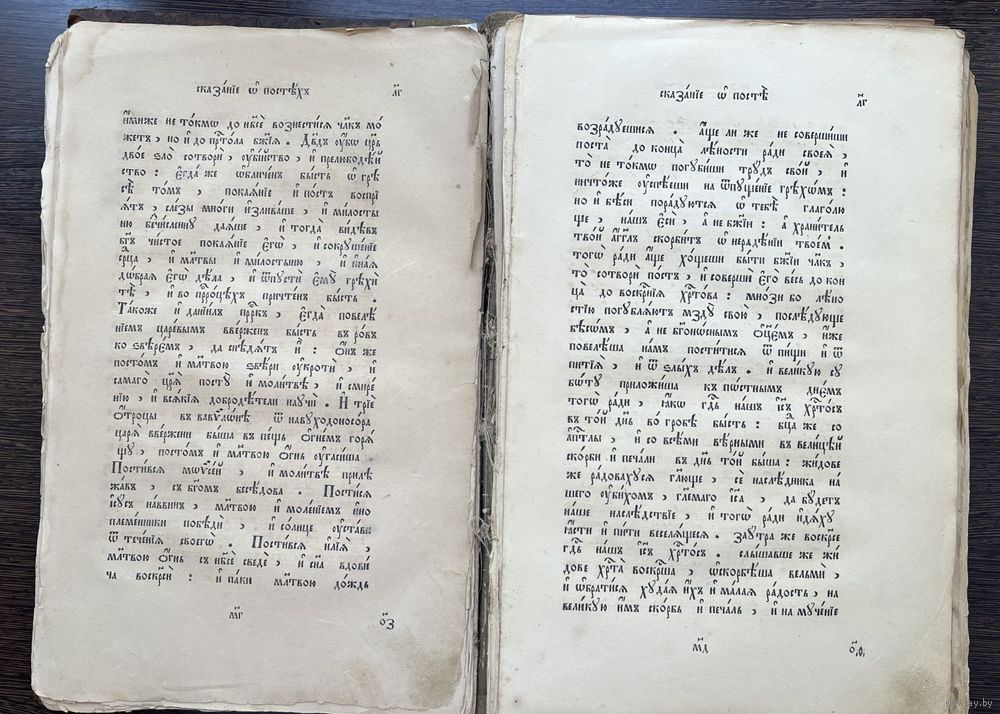 сказа́нїе ѡ҆ посте́хъ л҃г
и҆́миже не то́кмѡ до нб҃сѐ вознести́сѧ чл҃къ мо́
жетъ , но и҆ до прⷭ҇то́ла бж҃їѧ . Дв҃дъ ᲂу҆́бѡ цр҃ь
дво́е ѕло̀ сотворѝ , ᲂу҆бі́йство , и҆ прелюбодѣ́й
ство : Е҆гда́ же ѡ҆бличе́нъ бы́сть ѡ҆ грѣ
сѣ̀ то́мъ , покаѧ́нїе и҆ по́стъ воспрі
ѧ́тъ , сле́зы мно́ги и҆злива́ше , и҆ ми́лосты
ню бе́счисленну даѧ́ше , и҆ тогда̀ ви́дѣвъ
бг҃ъ чи́стое покаѧ́нїе є҆гѡ̀ , и҆ сокруше́нїе
срⷣца , и҆ мл҃твы и҆ ми́лостыню , и҆ и҆на́ѧ
дѡ́браѧ є҆гѡ̀ дѣла̀ , и҆ ѿпустѝ є҆мꙋ̀ грѣхѝ
тѣ̀ , и҆ во прⷪ҇ро́цѣхъ причте́нъ бы́сть .
Та́коже и҆ данїи́лъ прⷪ҇ро́къ , Е҆гда̀ повелѣ́
нїемъ царе́вымъ вве́рженъ бы́сть въ ро́въ
ко ѕвѣре́мъ , да снѣдѧ́тъ и҆̀ : ѻ҆́нъ же
посто́мъ и҆ мл҃твою ѕвѣ́ри ᲂу҆кротѝ , и҆
самаго̀ цр҃ѧ̀ посту̀ и҆ моли́твѣ , и҆ смире́
нїю , и҆ всѧ́кїѧ добродѣ́тели научѝ . И҆ трїѐ
ѻ҆́троцы въ вавѷло́нѣ ѿ навуходоно́сора
царѧ̀ вве́ржени бы́ша въ пе́щь ѻ҆гне́мъ горѧ́
щу , посто́мъ и҆ мл҃твою ѻ҆́гнь ᲂу҆гаси́ша .
Пости́всѧ мѡѷсе́й , и҆ моли́твѣ прилѣ
жа́въ , съ бг҃омъ бесѣ́дова . Пости́сѧ
і҆су́съ навви́нъ , мл҃твою и҆ моле́нїемъ и҆но
племе́нники побѣдѝ , и҆ со́лнце ᲂу҆ста́ви
ѿ тече́нїѧ своегѡ̀ . Пости́всѧ и҆лїѧ̀ ,
мл҃твою ѻ҆́гнь съ нб҃сѐ сведѐ , и҆ сн҃а вдови́
ча воскр҃сѝ : и҆ па́ки мл҃твою до́ждь
м҃г
ᲂ҃з
сказа́нїе ѡ҆ постѣ̀ л҃г
возра́дуешисѧ . а҆́ще ли же не соверши́ши
поста̀ до конца̀ лѣ́ности ра́ди своеѧ̀ ,
то̀ не то́кмѡ погуби́ши тру́дъ сво́й , и҆
ничто́же ᲂу҆спѣ́еши на ѿпуще́нїе грѣхѡ́мъ :
но и҆ бѣ́си пора́дуютсѧ ѡ҆ тебѣ̀ глаго́лю
ще , на́шъ є҆сѝ , а҆ не бж҃їи : а҆ храни́тель
тво́й а҆́гг҃лъ скорби́тъ ѡ҆ нераде́нїи твое́мъ .
тогѡ̀ ра́ди а҆́ще хо́щеши бы́ти бж҃їи чл҃къ ,
то̀ сотворѝ по́стъ , и҆ совершѝ є҆го̀ ве́сь до кон
ца̀ до воскрⷭ҇нїѧ хрⷭ҇то́ва : мно́зи бо лѣ́но
стїю погублѧ́ютъ мзду̀ свою̀ , послѣ́дующе
бѣсѡ́мъ , а҆ не бг҃оно́снымъ ѻ҆ц҃е́мъ , и҆́же
повелѣ́ша на́мъ пости́тисѧ ѿ пи́щи и҆ ѿ
питїѧ̀ , и҆ ѿ ѕлы́хъ дѣ́лъ . и҆ вели́кую су
бѡ́ту приложи́ша къ пѡ́стнымъ дне́мъ
тогѡ̀ ра́ди , ꙗ҆́кѡ гдⷭ҇ь на́шъ і҆с҃ъ хрⷭ҇то́съ
въ то́й дн҃ь во гро́бѣ бы́сть : бц҃а же со
а҆пⷭ҇лы , и҆ со всѣ́ми вѣ́рными въ вели́цѣй
ско́рби и҆ печа́ли въ дн҃ь то́й бы́ша : жи́дове
же ра́довахусѧ гл҃юще , сѐ наслѣ́дника на́
шего ᲂу҆би́хомъ , гл҃емаго і҆с҃а , да бу́детъ
на́ше наслѣ́дствїе , и҆ тогѡ̀ ра́ди и҆дѧ́ху
ꙗ҆́сти и҆ пи́ти веселѧ́щесѧ . Заутра же воскр҃се
гдⷭ҇ь на́шъ і҆с҃ъ хрⷭ҇то́съ . слы́шавше же жи́
дове хрⷭ҇та̀ воскр҃ша , ѡ҆скорбѣ́ша вельмѝ ,
и҆ ѡ҆брати́сѧ худа́ѧ и҆́хъ и҆ ма́лаѧ ра́дость , на
вели́кую и҆̀мъ ско́рбь и҆ печа́ль , и҆ на муче́нїе
м҃д